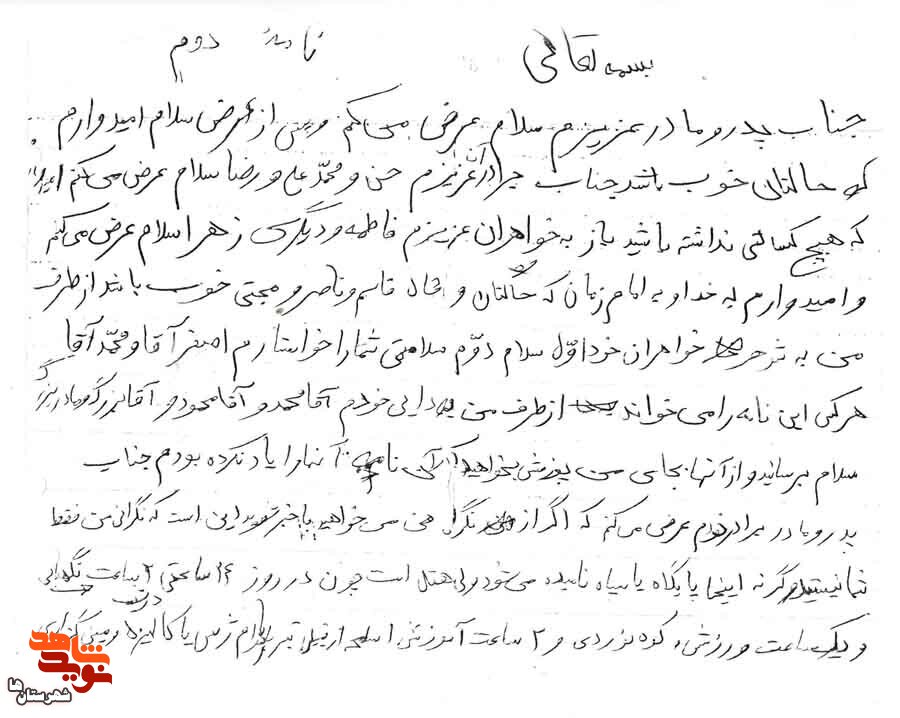 بسمه تعالی
نامه دوم
جناب پدر و مادر عزیزم سلام عرض می کنم و پس از عرض سلام امیدوارم
که حالتان خوب باشد جناب برادران عزیزم حسن و محمد علی و رضا سلام عرض می کنم
که هیچ کسالتی نداشته باشید باز به خواهران عزیزم فاطمه و دیگری زهرا سلام عرض می کنم
و امیدوارم به خدا و به امام زمان که حالتان و قاسم و ناصر و مجتبی خوب باشد از طرف
من به شوهر خواهران خود اوّل سلام دوّم سلامتی شما را خواستارم اصغر آقا و محمّد آقا
هر کس این نامه را می خواند از طرف من به دایی خودم آقا محمد و آقا محمود و آقا بزرگ و مادر بزرگ
سلام برسانید و از آنها بجای من پوزش بخواهید نامه آنها را یاد نکرده بودم جناب
پدر و مادر و برادر خودم عرض می کنم که اگر از من می خواهید با خبر شوید این است که نگرانی من فقط
شما نیستید وگرنه اینجا پایگاه یا سپاه نامیده می شود ولی هتل است چون در روز ۲۴ ساعتی ۲ ساعت نگهبانی
و یک ساعت ورزش، کوه نوردی و ۲ ساعت آموزش اسلحه از قبیل
نوید شاهد
شهرستان ها